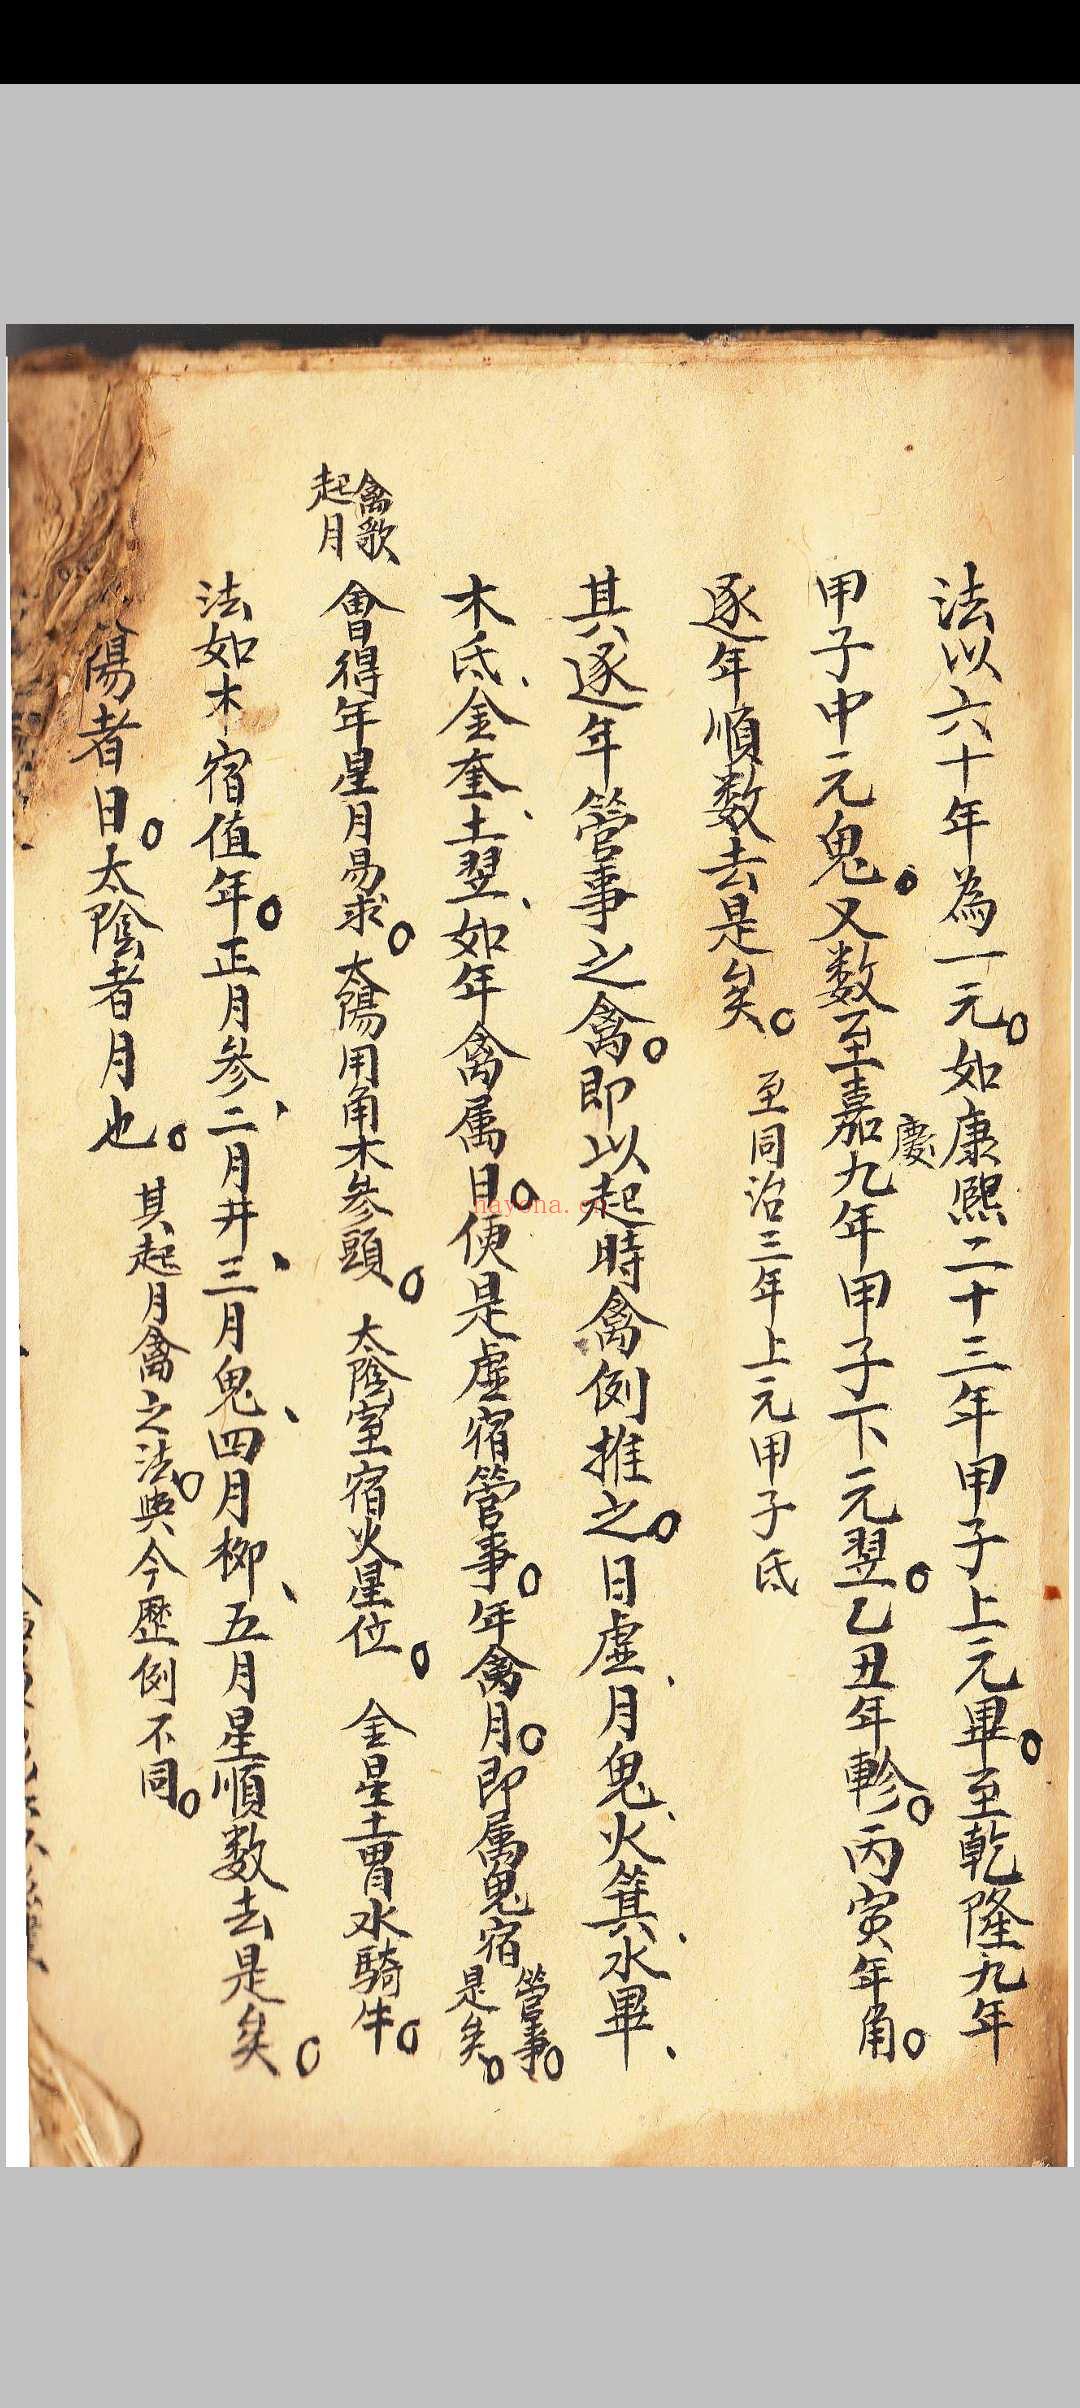 法以六十年為一元。如康熙二十三年甲子上元畢。至乾隆九年
甲子中元鬼。又数至嘉慶九年甲子下元翌。乙丑年軫。丙寅年角。
逐年順数去是矣。至同治三年上元甲子氐
其逐年管事之禽。即以起時禽例推之。日虛、月鬼、火箕、水畢、
木氐、金奎、土翌、如年禽属日。便是虛宿管事。年禽月。即属鬼宿管事。是矣。
禽歌
起月
會得年星月易求。太陽用角木參頭。太陰室宿火星位。金星土胃水騎牛。
法如木宿值年。正月參、二月井、三月鬼、四月柳、五月星順数去是矣。
陽者日。太陰者月也。其起月禽之法。與今歷例不同。
hayona.cn